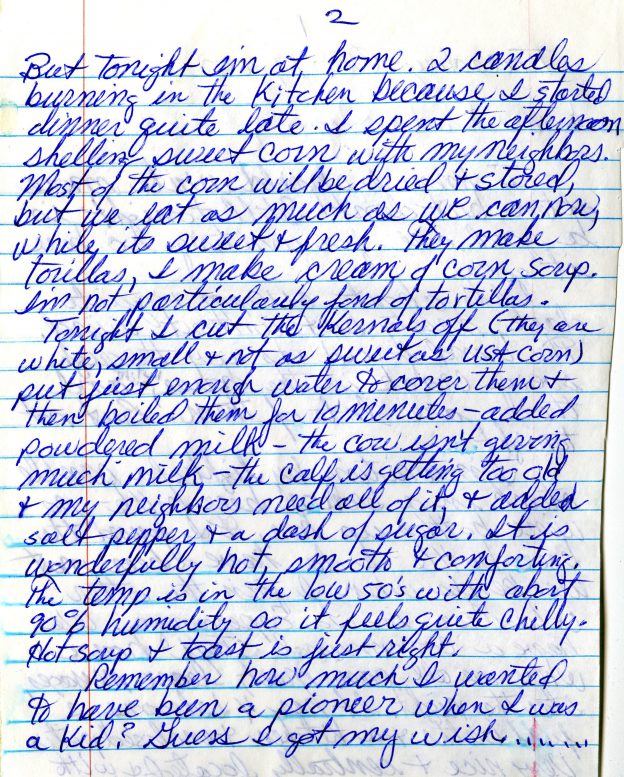 2
But Tonight I'm at home. 2 candles
burning in the kitchen because I started
dinner quite late. I spent the afternoon
shelling sweet corn with my neighbors.
Most of the corn will be dried & stored,
but we eat as much as we can now,
while its sweet & fresh. They make
torillas, I make cream of corn soup.
I'm not particularly fond of tortillas.
Tonight I cut the Kernals off (they are
white, small & not as sweet as USA corn)
put just enough water to cover them &
then boiled them for 10 minutes - added
powdered milk - the cow isn't giving
much milk - the calf is getting too old
& my neighbors need all of it, & added
salt pepper & a dash of sugar. It is
wonderfully hot, smooth & comforting.
The temp is in the low 50's with abort
90% humidity so it feels quite chilly.
Hot soup & toast is just right.
Remember how much I wanted
to have been a pioneer when I was
a kid? Guess I got my wish.......